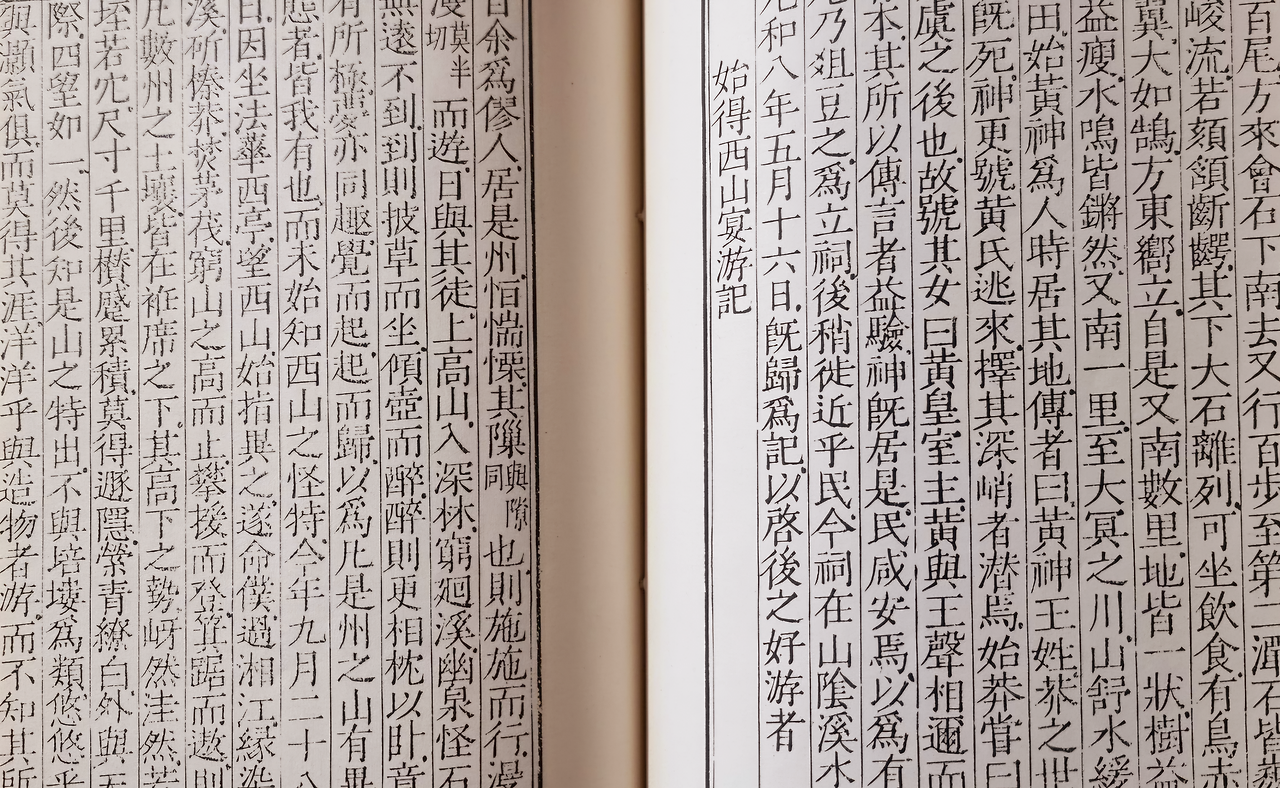 百尾方來會石下南去又行百步至第二潭石皆巍
峻流若頦頷齗齶其下大石離列可坐飲食有鳥赤
翼大如鵠方東嚮立自是又南數里地皆一狀樹益
益瘦水鳴皆鏘然又南一里至大冥之川山舒水緩
田始黃神爲人時居其地傳者曰黃神王姓莽之世
既死神更號黃氏逃來擇其深峭者潛焉始莽嘗曰
虞之後也故號其女曰黃皇室主黃與王聲相邇而
本其所以傳言者益驗神既居是民咸安焉以爲有
乃俎豆之爲立祠後稍徙近乎民今祠在山陰溪水
元和八年五月十六日既歸爲記以啓後之好游者
始得西山宴游記
自余爲僇人居是州恒惴慄其隟與隙同也則施施而行漫
漫莫半切而遊日與其徒上高山入深林窮迴溪幽泉怪石
無遠不到到則披草而坐傾壺而醉醉則更相枕以臥意
有所極夢亦同趣覺而起起而歸以爲凡是州之山有異
態者皆我有也而未始知西山之怪特今年九月二十八
日因坐法華西亭望西山始指異之遂命僕過湘江緣染
溪斫榛莽焚茅茷窮山之高而止攀援而登箕踞而遨則
凡數州之土壤皆在袵席之下其高下之勢岈然洼然若
垤若穴尺寸千里攢蹙累積莫得遯隱縈青繚白外與天
際四望如一然後知是山之特出不與培塿爲類悠悠乎
與灝氣俱而莫得其涯洋洋乎與造物者游而不知其所